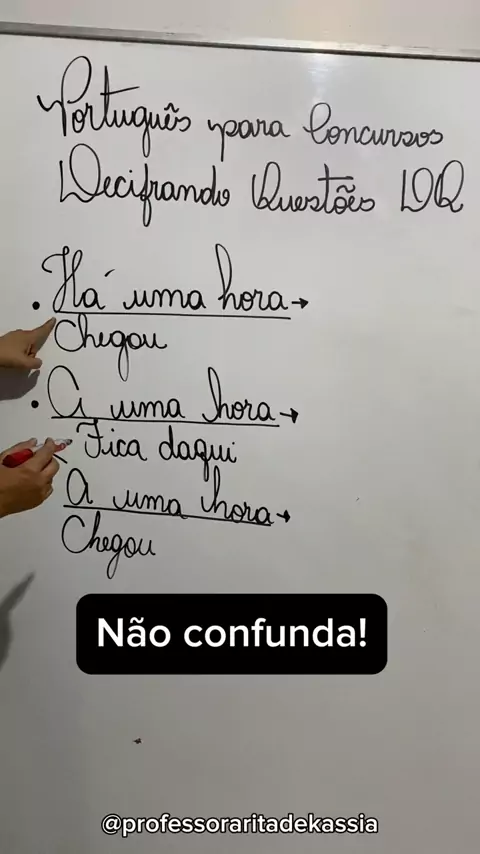 Português para Concursos
Decifrando Questões DQ
• Há uma hora →
Chegou
• A uma hora →
Fica daqui
A uma hora →
Chegou
Não confunda!
@professoraritadekassia